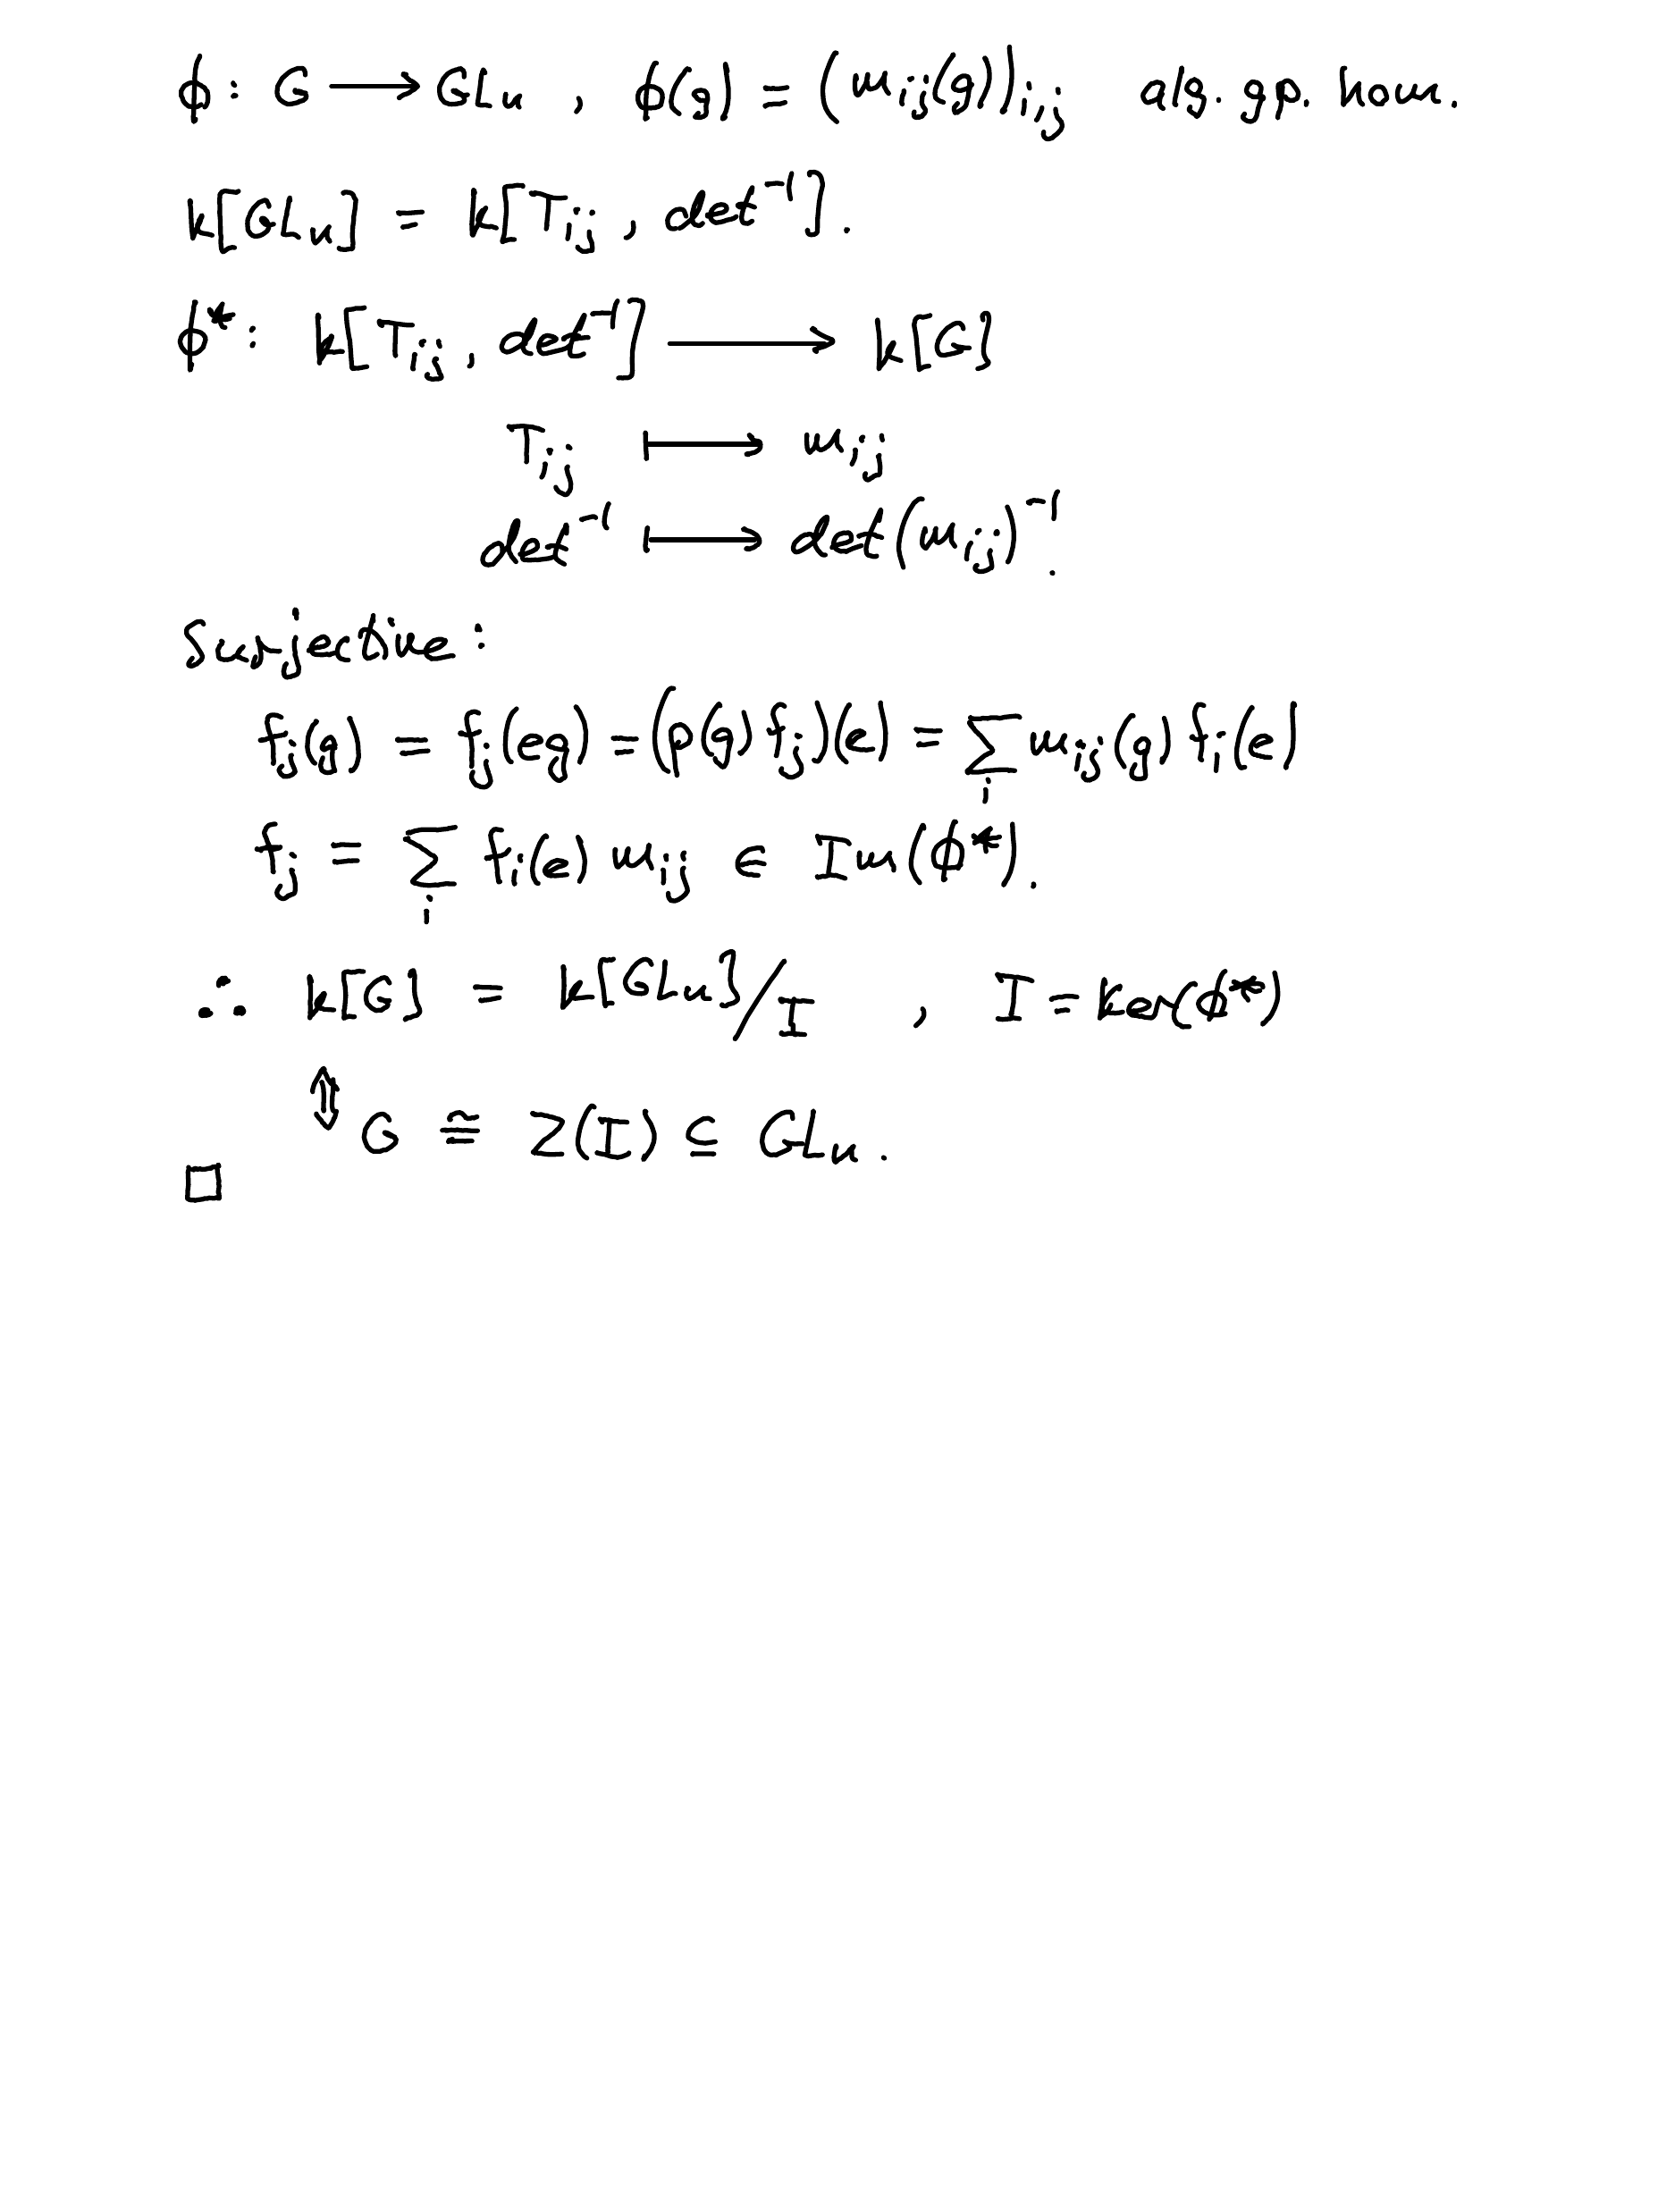 ϕ: G ⟶ GLₙ , ϕ(g) = (mᵢⱼ(g))ᵢ,ⱼ alg. gp. hom.
k[GLₙ] = k[Tᵢⱼ, det⁻¹].
ϕ*: k[Tᵢⱼ, det⁻¹] ⟶ k[G]
Tᵢⱼ ⟼ mᵢⱼ
det⁻¹ ⟼ det(mᵢⱼ)⁻¹.
Surjective:
fⱼ(g) = fⱼ(eg) = (ρ(g)fⱼ)(e) = ∑ᵢ mᵢⱼ(g) fᵢ(e)
fⱼ = ∑ᵢ fᵢ(e) mᵢⱼ ∈ Im(ϕ*).
∴ k[G] = k[GLₙ]/I , I = ker(ϕ*)
⇕ G ≅ Z(I) ⊆ GLₙ.
□